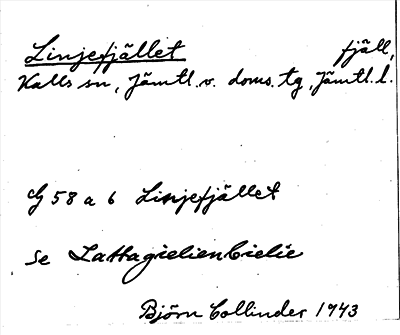 Linjefjället fjäll,
Kalls sn, Jämtl. v. doms. tg, Jämtl. l.
G 58 a b Linjefjället
Se Lattagielienbielie
Björn Collinder 1943